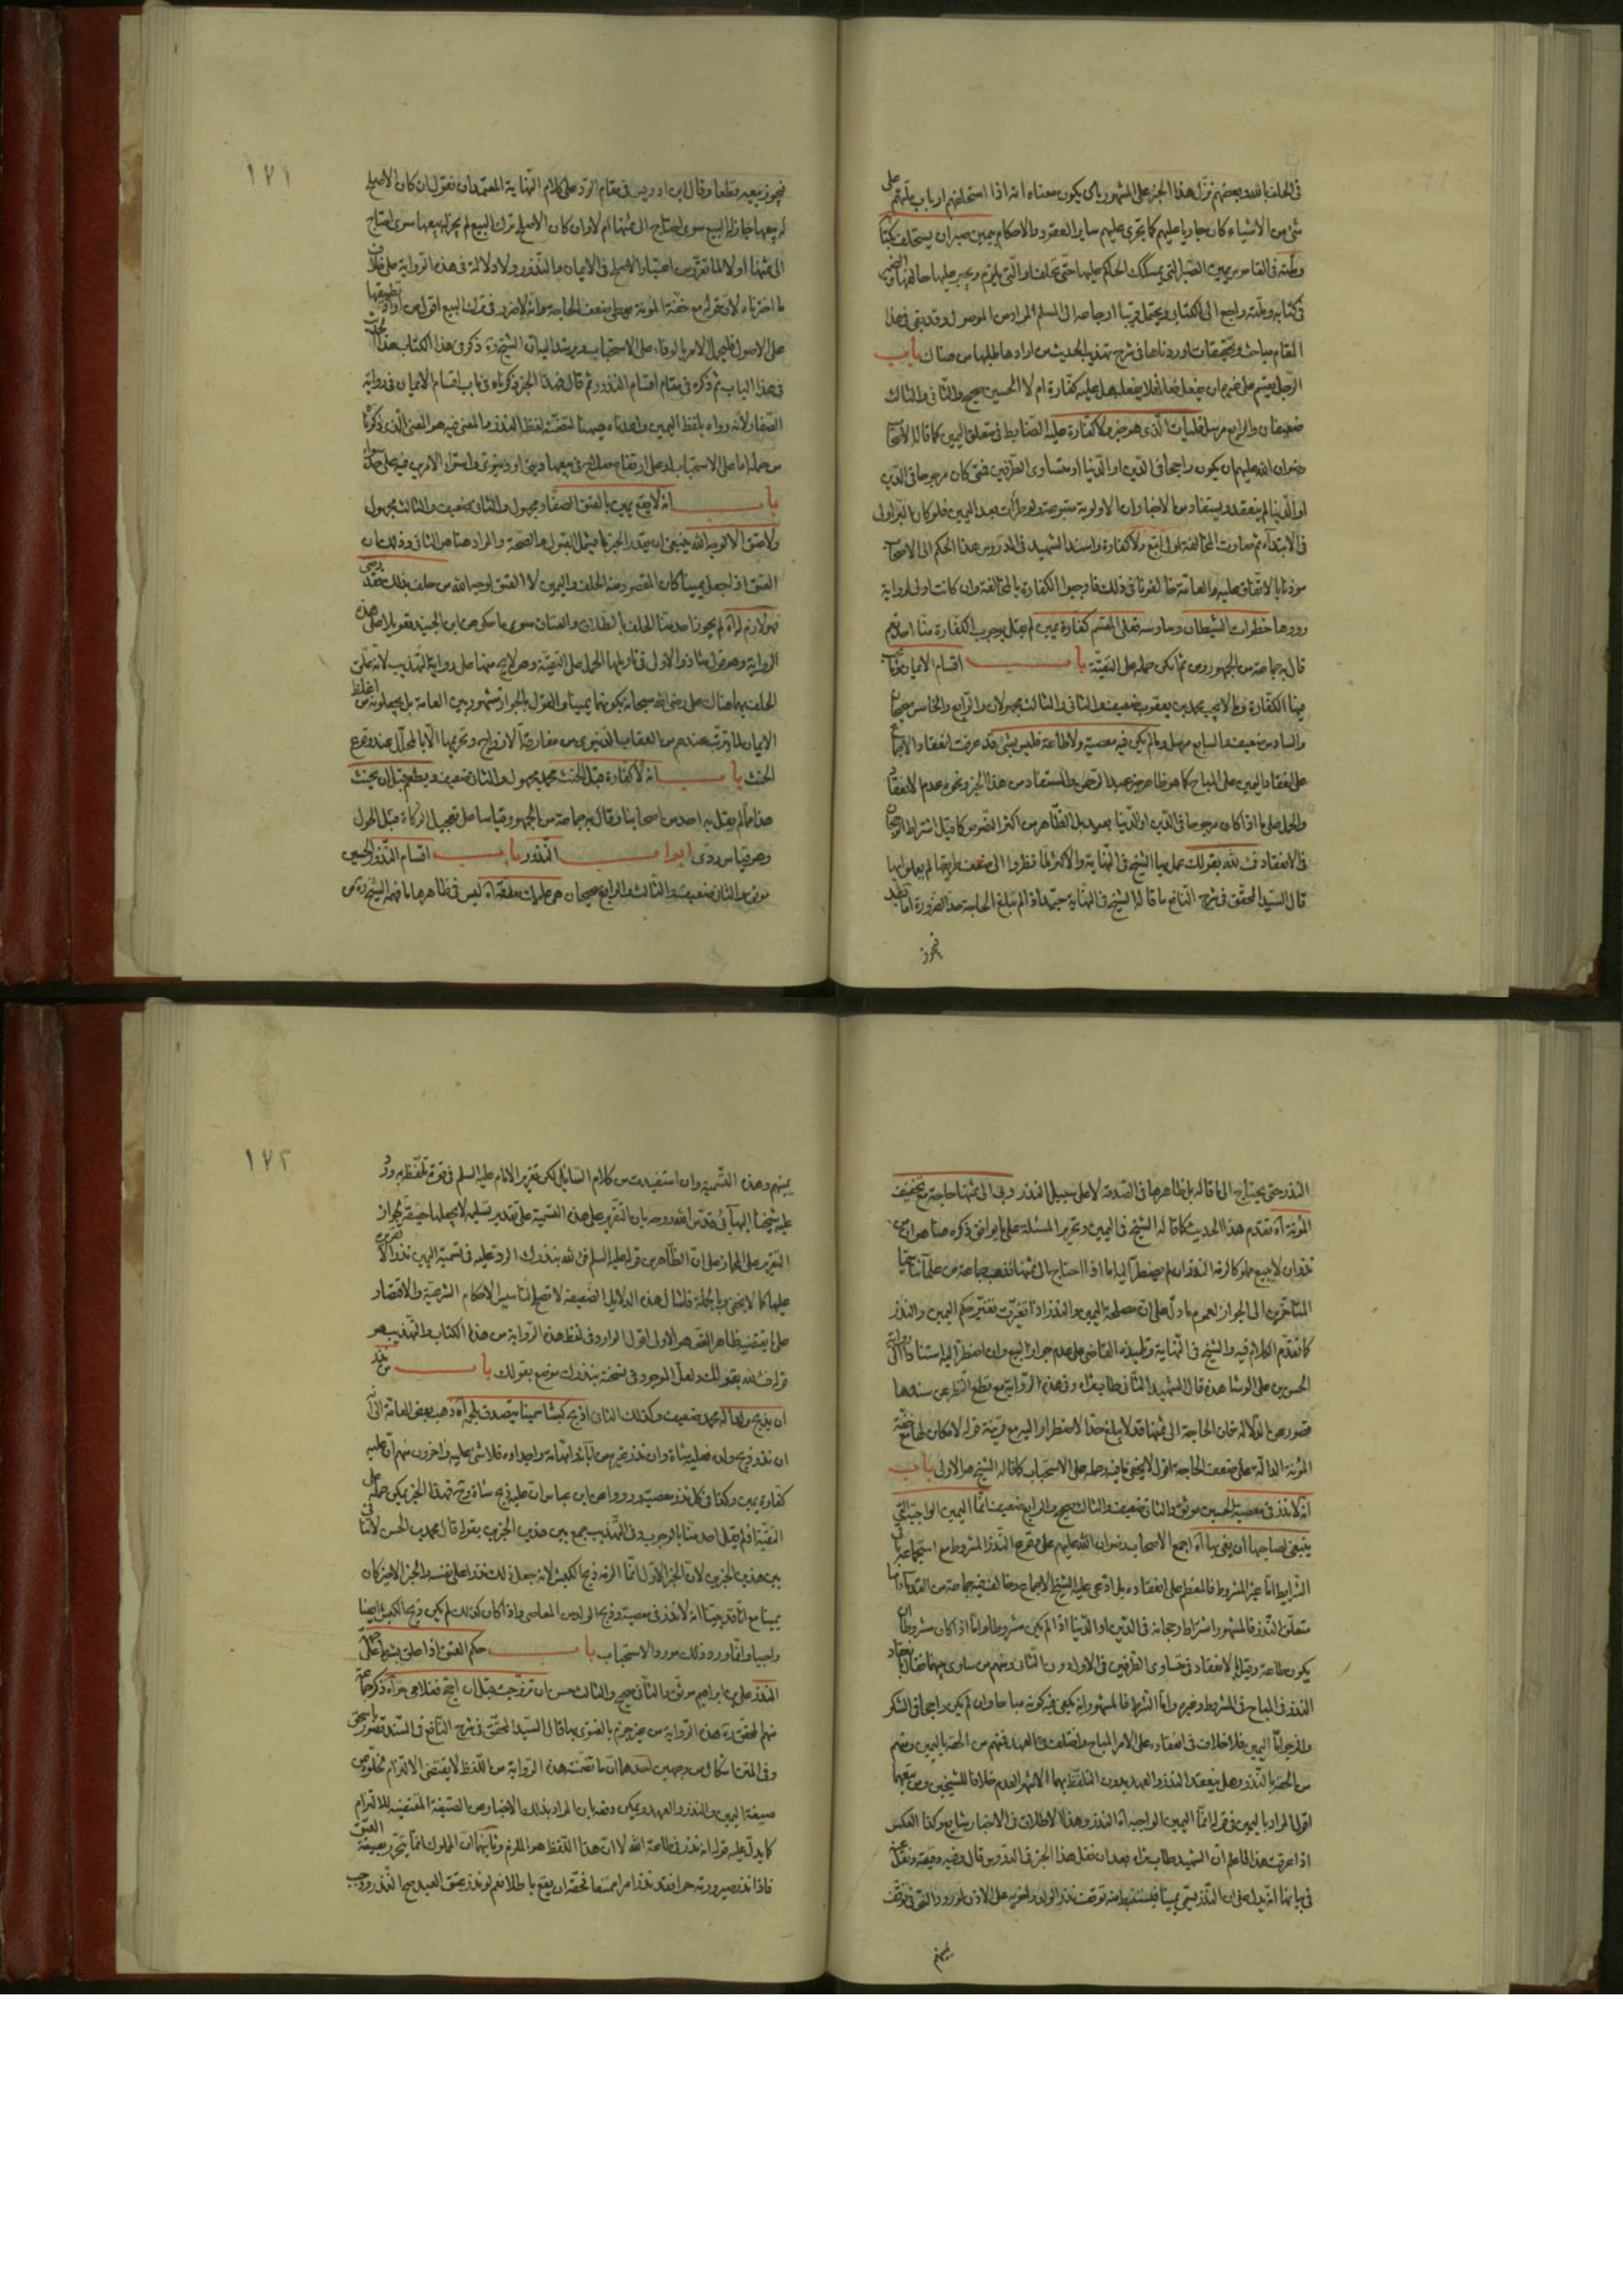 في الحلف بالله وبعضهم نزل هذا الخبر على المشهور بان يكون معناه انه اذا استحلفهم ارباب ملتهم على
شئ من الاشياء كان جاريا عليهم كما يجرى عليهم ساير العقود والاحكام يمين صبر ان يستحلف بكتابه
وملته في القاموس يمين الصبر التي يمسكك الحاكم عليها حتى تحلف او التي يلزم ويجبر عليها حالفها والضمير
في كتابه وملته راجع الى الكتابي ويحتمل قريبا ارجاعه الى المسلم المراد من الموصول وقد بقى في هذا
المقام مباحث وتحقيقات اوردناها في شرح تهذيب الحديث من ارادها طلبها من هناك باب
الرجل يقسم على غيره ان يفعل فعلا فلا يفعل هل عليه كفارة ام لا الحسين صحيح والثاني والثالث
ضعيفان والرابع مرسل فليأت الذى هو خير ولا كفارة عليه الضابط في متعلق اليمين كما قاله الاصحاب
رضوان الله عليهم ان يكون راجحا في الدين او الدنيا او متساوى الطرفين فمتى كان مرجوحا في الدين
او الدنيا لم ينعقد ويستفاد من الاخبار ان الاولوية متبوعة ولو طرأت بعد اليمين فلو كان البر اولى
في الابتداء ثم صارت المخالفة اولى اتبع ولا كفارة واسند الشهيد في الدروس هذا الحكم الى الاصحاب
موذنا بالاتفاق عليه والعامة خالفونا في ذلك فاوجبوا الكفارة بالمخالفة وان كانت اولى لرواية
رووها خطوات الشيطان وساوسه فعلى المقسم كفارة يمين لم يقل بوجوب الكفارة منا احد نعم
قال به جماعة من الجمهور ومن ثم امكن حمله على التقية باب اقسام الايمان
فيها الكفارة وما لا يجب محمد بن يعقوب ضعيف والثاني والثالث مجهولان والرابع والخامس صحيحان
والسادس ضعيف والسابع مرسل وما لم يكن فيه معصية ولا طاعة فليس بشئ قد عرفت انعقاد الاجماع
على انعقاد اليمين على المباح كما هو ظاهر خبر عبد الرحمن والمستفاد من هذا الخبر ونحوه عدم الانعقاد
والحمل على ما اذا كان مرجوحا في الدين او الدنيا بعيد بل الظاهر من اكثر النصوص كما قيل اشتراط الرجحان
في الانعقاد ف لله بقولك عمل بها الشيخ في النهاية والاكثر لما نظروا الى ضعف طريقها لم يعملوا بها
قال السيد المحقق في شرح النافع ما قاله الشيخ في النهاية جيد اذا لم تبلغ الحاجة حد الضرورة اما بعد
فيجوز
١٧١
فيجوز بيعه قطعا وقال ابن ادريس في مقام الرد على كلام النهاية المعتمد ان نقول ان كان الاصلح
له بيعها جاز له البيع سوى احتاج الى ثمنها ام لا وان كان الاصلح ترك البيع لم يجز له بيعها سوى احتاج
الى ثمنها او لا لما تقرر من اعتبار الاصلح في الايمان والنذور ولا دلالة في هذه الرواية على خلاف
ما اخترناه لان قوله مع خفة المؤنة يعطى ضعف الحاجة وانه لا ضرر في ترك البيع اقول من اراد تطبيقها
على الاصول فليحمل الامر بالوفاء على الاستحباب ويرشد اليه ان الشيخ ره ذكر في هذا الكتاب هذا الحديث
في هذا الباب ثم ذكره في مقام اقسام النذور ثم قال فهذا الخبر ذكرناه في باب اقسام الايمان في رواية
الصفار لانه رواه بلفظ اليمين واعدناه هيهنا لتضمنه لفظ النذر والمعنى فيه هو المعنى الذى ذكرناه
من حمله اما على الاستحباب او على ارتفاع صلاح في بيعها ديني او دنيوى واستواء الامرين فيه على حد سواء
باب انه لا يقع يمين بالعتق الصفار مجهول والثاني ضعيف والثالث مجهول
ولا عتق الا لوجه الله ينبغى ان يقدر الخبر بما يشمل القبول والصحة والمراد هنا هو الثاني وذلك ان
العتق اذا جعل يمينا كان المقصود منه الحلف واليمين لا العتق لوجه الله من حلف بذلك فقد رضى
فهو لازم له اه لم يجوز احد منا الحلف بالطلاق والعتاق سوى ما حكى عن ابن الجنيد تعويلا على هذه
الرواية وهو قول شاذ والاولى في تاويلها الحمل على التقية وهو لايح منها على رواية التهذيب لانه علق
الحلف بهما هناك على رضى الله سبحانه بكونهما يمينا والقول بالجواز مشهور بين العامة بل يجعلونه من اغلظ
الايمان لما يترتب عندهم من العقاب الدنيوى من مفارقة الازواج وتحريمها الا بالمحلل عند وقوع
الحنث باب انه لا كفارة قبل الحنث محمد مجهول والثاني ضعيف ويطعم قبل ان يحنث
هذا مما لم يقل به احد من اصحابنا وقال به جماعة من الجمهور قياسا على تعجيل الزكاة قبل الحول
وهو قياس ردى ابواب النذور باب اقسام النذر الحسين
موثق والثاني ضعيف والثالث والرابع صحيحان هو عليك صدقة اه ليس في ظاهرها ما فهمه الشيخ ره من
النذر حتى يحتاج الى ما قاله بل ظاهرها في الصدقة لا على سبيل النذر وبى الى ثمنها حاجة مع تخفيف
المؤنة اه تقدم هذا الحديث كما قاله الشيخ في اليمين وتحرير المسئلة على ما يوافق ذكره هنا هو ان من
نذر ان لا يبيع مملوكا لزمه النذر ان لم يضطر اليه اما اذا احتاج الى ثمنها فذهب جماعة من علمائنا سيما
المتاخرين الى الجواز لعموم ما دل على ان مصلحة اليمين والنذر اذا تغيرت تغير حكم اليمين والنذر
كما تقدم الكلام فيه والشيخ في النهاية وتلميذه القاضى على عدم جواز البيع وان اضطر اليه استنادا الى رواية
الحسن بن على الوشا هذه قال الشهيد الثاني طاب ثراه وفي هذه الرواية مع قطع النظر عن سندها
قصور عن الدلالة فان الحاجة الى ثمنها قد لا يبلغ حد الاضطرار اليه مع قرينة قوله لا مكان لها مع خفة
المؤنة الدالة على ضعف الحاجة اقول لا يخفى ما فيه وحمله على الاستحباب كما قاله الشيخ هو الاولى باب
انه لا نذر في معصية الحسين موثق والثاني ضعيف والثالث صحيح والرابع ضعيف انما اليمين الواجبة التي
ينبغى لصاحبها ان يفى بها اه اجمع الاصحاب رضوان الله عليهم على وقوع النذر المشروط مع استجماع باقى
الشرايط اما غير المشروط فالمعظم على انعقاده بل ادعى عليه الشيخ الاجماع وخالف فيه جماعة من القدماء واما
متعلق النذر فالمشهور اشتراط رجحانه في الدين او الدنيا اذا لم يكن مشروطا واما اذا كان مشروطا ان
يكون طاعة وقيل بالانعقاد في تساوى الطرفين في الاول دون الثاني ومنهم من ساوى بينهما فقال بانعقاد
النذر في المباح في المشروط وغيره واما الشرط فالمشهور انه يكفى فيه كونه مباحا وان لم يكن راجحا في الشكر
والزجر واما اليمين فلا خلاف في انعقاده على الامر المباح واختلف في العهد فمنهم من الحقه باليمين ومنهم
من الحقه بالنذر وهل ينعقد النذر والعهد بدون التلفظ بهما الاشهر العدم خلافا للشيخين ومن تبعهما
اقول المراد باليمين في قوله انما اليمين الواجبة اه النذر وهذا الاطلاق في الاخبار شايع وكذا العكس
اذا عرفت هذا فاعلم ان الشهيد طاب ثراه بعد ان نقل هذا الخبر في الدروس قال وفيه دقيقة ونقل عنه
في بيانها انه يدل على ان النذر يسمى يمينا فيستنبط منه توقف نذر الولد واخويه على الاذن لورود النص في توقف
يمينهم
١٧٢
يمينهم وهذه التسمية وان استفيدت من كلام السائل لكن تقرير الامام عليه السلم في قوة تلفظه به ورد
عليه شيخنا البهائى قدس الله روحه بان التقرير على هذه التسمية على تقدير تسليمه لا يجعلها حقيقة لجواز
التقرير على المجاز على ان الظاهر من قوله عليه السلم ف لله بنذرك الرد عليه في تسمية اليمين نذرا لا تقريره
عليها كما لا يخفى وبالجملة فامثال هذه الدلايل الضعيفة لا تصلح لتاسيس الاحكام الشرعية والاقتصار
على ما يقتضيه ظاهر النص هو الاولى اقول الوارد في لفظ هذه الرواية من هذا الكتاب والتهذيب هو
قوله ف لله بقولك ولعل الموجود في نسخته بنذرك موضع بقولك باب من نذر
ان يذبح ولدا له محمد ضعيف وكذلك الثاني اذبح كبشا سمينا يتصدق بلحمه اه ذهب بعض العامة الى انه
ان نذر ذبح ولده فعليه شاة وان نذر غيره من آبائه وامهاته واجداده فلا شئ عليه واخرون منهم ان عليه
كفارة يمين وكذا في كل نذر معصية ورووا عن ابن عباس ان عليه ذبح شاة وح فهذا الخبر يمكن حمله على
التقية اذ لم يقل احد منا بالوجوب وفي التهذيب جمع بين هذين الخبرين بقوله قال محمد بن الحسن لا تنافى
بين هذين الخبرين لان الخبر الاول انما الزمه ذبح الكبش لانه جعل ذلك نذرا على نفسه والخبر الاخير كان
يمينا مع انا قد بينا انه لا نذر في معصية وذبح الولد من المعاصى واذا كان كذلك لم يكن ذبح الكبش ايضا
واجبا وانما ورد ذلك مورد الاستحباب باب حكم العتق اذا علق بشرط على جهة
النذر على بن ابراهيم موثق والثاني صحيح والثالث حسن ان تزوجت قبل ان احج فغلامى حر اه ذكر جماعة
منهم المحقق ره هذه الرواية من غير جزم بالفتوى بها قال السيد المحقق في شرح النافع في السند قصور باسحق
وفي المتن اشكال من وجهين احدها ان ما تضمنته هذه الرواية من اللفظ لا يقتضى الالتزام لخلوه من
صيغة اليمين والنذر والعهد ويمكن دفعه بان المراد بذلك الاخبار عن الصيغة المقتضية للالتزام
كما يدل عليه قوله انه نذر في طاعة الله لا ان هذا اللفظ هو الملزم وثانيهما ان المملوك انما يتحرر بصيغة العتق
فاذا نذر صيرورته حرا فقد نذر امرا ممتنعا فحقه ان يقع باطلا نعم لو نذر عتق العبد صح النذر ووجب